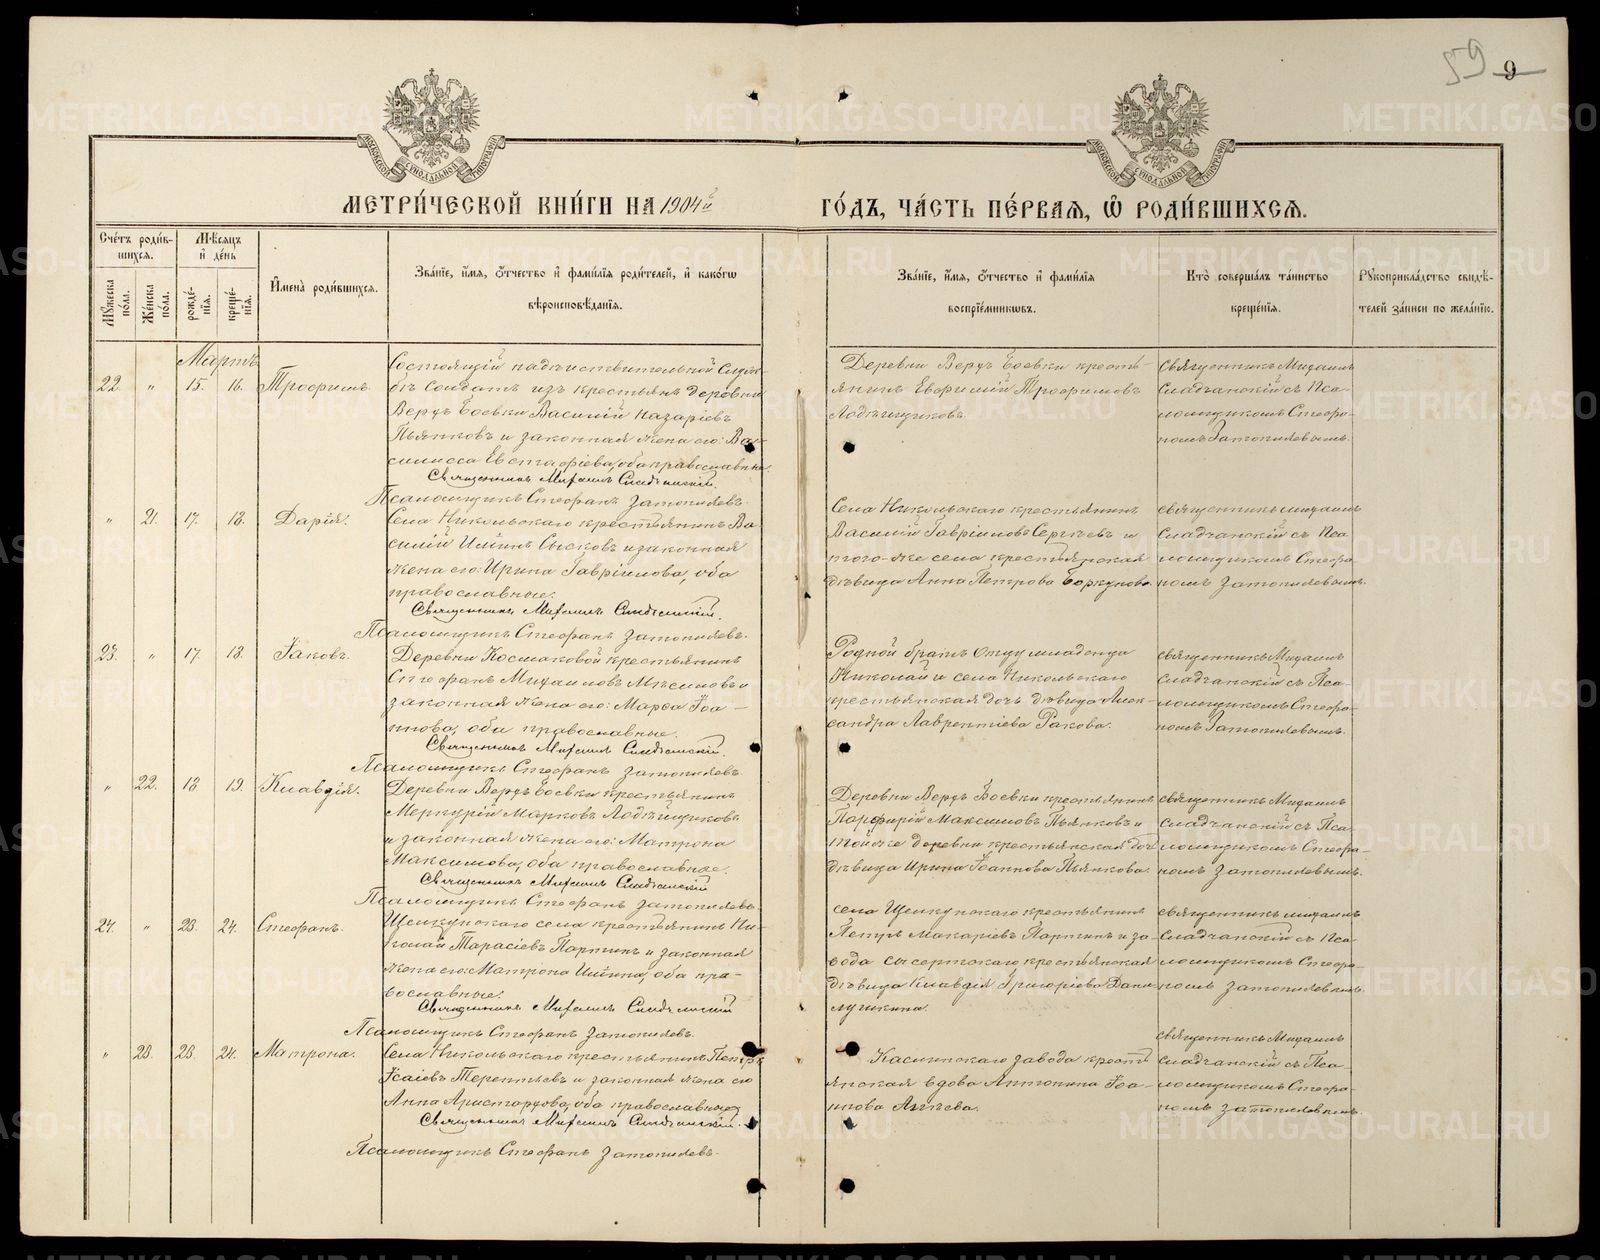 59 9
МОСКОВСКОЙ СѴНОДАЛЬНОЙ ТИПОГРАФІИ
МОСКОВСКОЙ СѴНОДАЛЬНОЙ ТИПОГРАФІИ
МЕТРИ́ЧЕСКОЙ КНИ́ГИ НА 1904й ГО́ДЪ, ЧА́СТЬ ПЕ́РВАѦ, Ѡ҆ РОДИ́ВШИХСѦ.
Сче́тъ роди́в-
шихсѧ.
Мꙋ́жеска по́ла.
Же́нска по́ла.
Мѣ́сѧцъ и҆ де́нь
рожде́-нїѧ.
креще́-нїѧ.
И҆мена̀ роди́вшихсѧ.
Зва́нїе, и҆́мѧ, ѻ҆́тчество и҆ фами́лїѧ роди́телей, и҆ како́гѡ
вѣроисповѣ́данїѧ.
Зва́нїе, и҆́мѧ, ѻ҆́тчество и҆ фами́лїѧ
воспрїе́мникѡвъ.
Кто̀ соверша́лъ та́инство
креще́нїѧ.
Рꙋкоприкла́дство свидѣ́-
телей за́писи по жела́нїю.
Мартъ
22. " 15. 16. Трофимъ.
Состоящій на дѣйствительной служ-
бѣ солдатъ изъ крестьянъ деревни
Верхъ Боевки Василій Назаріевъ
Пьянковъ и законная жена его: Ва-
силисса Евстафіева, оба православные
Священникъ Михаилъ
Псаломщикъ Стефанъ Затопляевъ.
Деревни Верхъ Боевки кресть-
янинъ Евфимій Трофимовъ
Ладѣйщиковъ.
Священникъ Михаилъ
съ Пса-
ломщикомъ Стефа-
номъ Затопляевымъ.
" 21. 17. 18. Дарія.
Села Никольскаго крестьянинъ Ва-
силій Ильинъ Сысковъ и законная
жена его: Ирина Гавріилова, оба
православные.
Священникъ Михаилъ
Псаломщикъ Стефанъ Затопляевъ.
Села Никольскаго крестьянинъ
Василій Гавріиловъ Сергѣевъ и
того-же села крестьянская
дѣвица Анна Петрова
священникъ Михаилъ
съ Пса-
ломщикомъ Стефа-
номъ Затопляевымъ.
23. " 17. 18. Іаковъ.
Деревни Космаковой крестьянинъ
Стефанъ Михаиловъ и
законная жена его: Марфа Іоа-
ннова, оба православные.
Священникъ Михаилъ
Псаломщикъ Стефанъ Затопляевъ.
Родной братъ отцу младенца
Николай и села Никольскаго
крестьянская дочь дѣвица Алек-
сандра Лаврентіева Ракова.
священникъ Михаилъ
съ Пса-
ломщикомъ Стефа-
номъ Затопляевымъ.
" 22. 18 19. Клавдія.
Деревни Верхъ Боевки крестьянинъ
Меркурій Марковъ Ладѣйщиковъ
и законная жена его: Матрона
Максимова, оба православные.
Священникъ Михаилъ
Псаломщикъ Стефанъ Затопляевъ.
Деревни Верхъ Боевки крестьянинъ
Порфирій Максимовъ Пьянковъ и
той-же деревни крестьянская дочь
дѣвица Ирина Іоаннова Пьянкова.
священникъ Михаилъ
съ Пса-
ломщикомъ Стефа-
номъ Затопляевымъ.
24. " 23. 24. Стефанъ.
Щелкунскаго села крестьянинъ Ни-
колай Тарасіевъ Партинъ и законная
жена его: Матрона Ильина, оба пра-
вославные.
Священникъ Михаилъ
Псаломщикъ Стефанъ Затопляевъ.
села Щелкунскаго крестьянинъ
Петръ Макаріевъ Партинъ и за-
вода Сысертскаго крестьянская
дѣвица Клавдія Григоріева
священникъ Михаилъ
съ Пса-
ломщикомъ Стефа-
номъ Затопляевымъ.
" 23. 23. 24. Матрона.
Села Никольскаго крестьянинъ Петръ
Исаіевъ Терентьевъ и законная жена его
Анна Аристархова, оба православные
Священникъ Михаилъ
Псаломщикъ Стефанъ Затопляевъ.
Каслинскаго завода кресть-
янская вдова Антонина Іоа-
ннова
священникъ Михаилъ
съ Пса-
ломщикомъ Стефа-
номъ Затопляевымъ.
METRIKI.GASO-URAL.RU